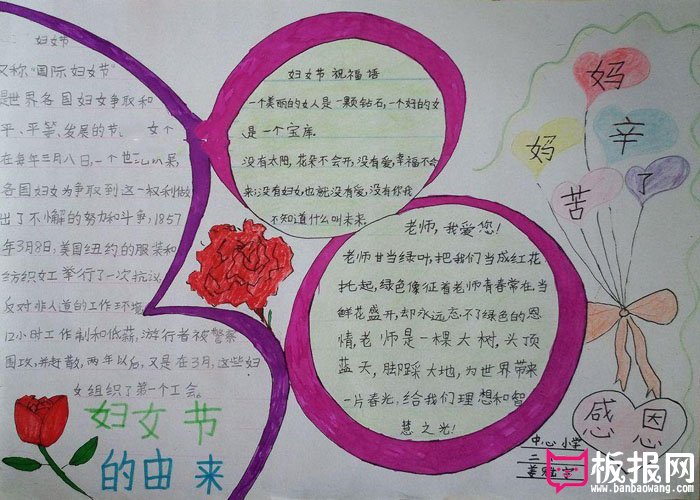 妇女节
又称"国际妇女节"
是世界各国妇女争取和
平、平等、发展的节。
在每年三月八日,一个世
各国妇女为争取到这一权利做
出了不懈的努力和斗争,1857
年3月8日,美国纽约的服装和
纺织女工举行了一次抗议
反对非人道的工作环境
12小时工作制和低薪,游行者被警察
围攻,并赶散,两年以后,又是在3月,这些妇
女组织了第一个工会。
妇女节
的由来
妇女节 祝福语
一个美丽的女人是一颗钻石,一个好的女
是一个宝库.
没有太阳,花朵不会开,没有爱,幸福不会
来;没有妇女,也就没有爱,没有你我
不知道什么叫未来.
老师,我爱您!
老师甘当绿叶,把我们当成红花
托起,绿色像征着老师青春常在,当
鲜花盛开,却永远忘不了绿色的恩
情,老师是一棵大树,头顶
蓝天,脚踩大地,为世界带来
一片春光,给我们理想和智
慧之光!
妈
妈
辛
苦
了
感恩
中心小学
板报网
www.banbaowang.com